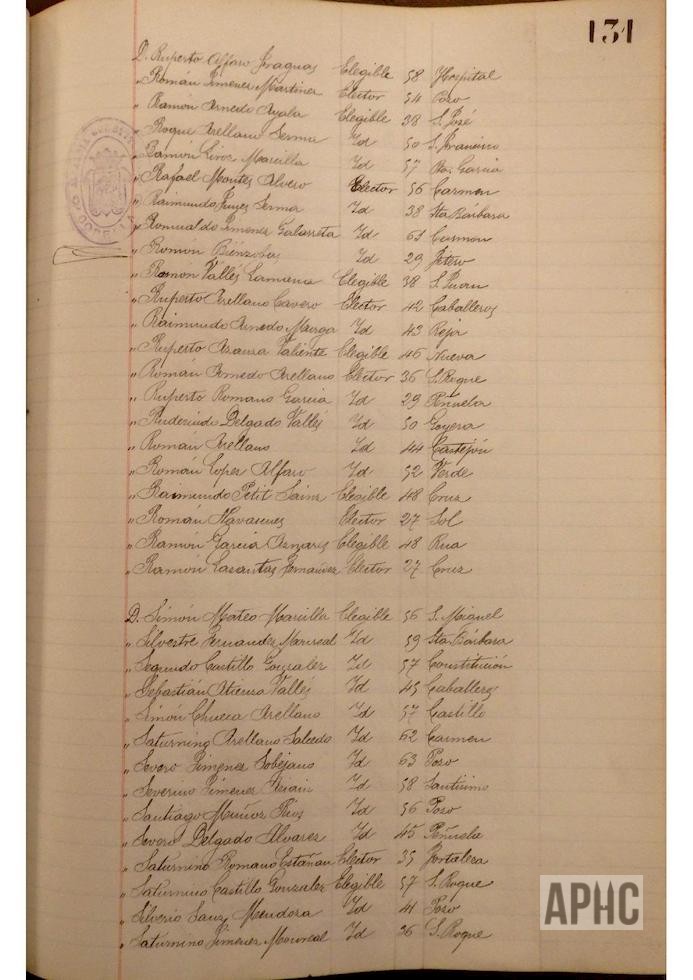 131
D. Ruperto Alfaro Jraguas Elegible 58 Hospital
" Román Jimenez Martinez Elector 54 Poso
" Ramón Arnedo Ayala Elegible 38 S. José
" Roque Arellano Serma Id 50 S. Francisco
" Ramón Liroz Marcilla Id 57 Ba. Garcia
" Rafael Montes Alvero Elector 56 Carmen
" Raimundo Serma Id 38 Sta Bárbara
" Romualdo Jimenez Galarreta Id 61 Carmen
" Román Id 29
" Ramón Vallés Elegible 38 S. Juan
" Ruperto Arellano Cavero Elector 42 Caballeros
" Raimundo Arnedo Murga Id 43 Reja
" Ruperto Asausa Valiente Elegible 46 Nueva
" Román Arnedo Arellano Elector 36 S. Roque
" Ruperto Romano Garcia Id 29 Peñuela
" Rudesindo Delgado Vallés Id 50 Goyera
" Román Arellano Id 44 Castejón
" Román Lopez Alfaro Id 52 Verde
" Raimundo Petit Sainz Elegible 48 Cruz
" Román Navascues Elector 27 Sol
" Ramón Garcia Aznares Elegible 48 Rua
" Ramón Lasantas Fernandez Elector 27 Cruz
D. Simón Mateo Marcilla Elegible 56 S. Miguel
" Silvestre Fernandez Monreal Id 59 Sta. Bárbara
" Segundo Castillo Gonzalez Id 57 Constitución
" Sebastián Atienza Vallés Id 45 Caballeros
" Simón Chueca Arellano Id 57 Castillo
" Saturnino Arellano Salcedo Id 62 Carmen
" Severo Jimenez Sobejano Id 63 Poso
" Severino Jimenez Id 58 Santisimo
" Santiago Muñoz Rios Id 56 Poso
" Severo Delgado Alvarez Id 45 Peñuela
" Saturnino Romano Estañan Elector 35 Fortaleza
" Saturnino Castillo Gonzalez Elegible 57 S. Roque
" Silverio Sanz Mendoza Id 41 Poso
" Saturnino Jimenez Monreal Id 36 S. Roque
APHC